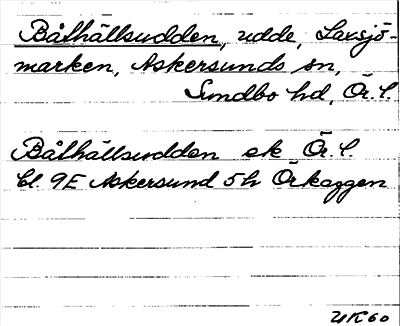 Båthällsudden, udde, Laxsjö-
marken, Askersunds sn,
Sundbo hd, Ör. l.
Båthällsudden ek Ör. l.
bl. 9E Askersund 5h Örkaggen
UK60